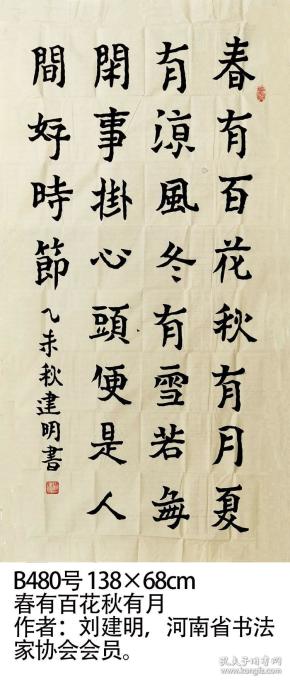 春有百花秋有月夏
有涼風冬有雪若無
閑事掛心頭便是人
間好時節
乙未秋建明書
B480号 138×68cm
春有百花秋有月
作者：刘建明，河南省书法
家协会会员。